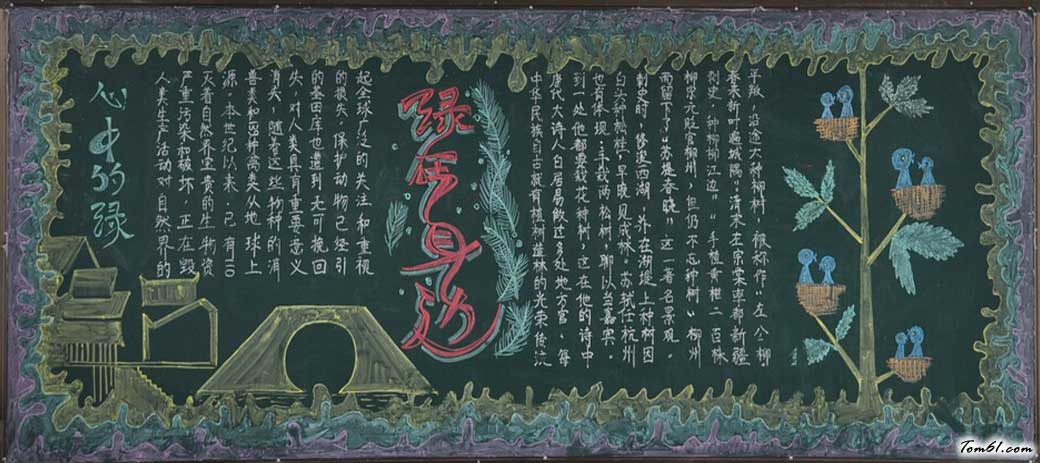 心中的绿
人类生产活动对自然界的
严重污染和破坏,正在毁
灭着自然界宝贵的生物资
源,本世纪以来,已有110
兽类和139种禽类从地球上
消失,随着这些物种的消
失,对人类具有重要意义
的基因库也遭到无可挽回
的损失,保护动物已经引
起全球广泛的关注和重视
绿在身边
中华民族自古就有植树造林的光荣传统
唐代大诗人白居易做过多处地方官,每
到一处他都要栽花种树,这在他的诗中
也有体现:手栽两松树,聊以当嘉宾。
白头种松桂,早晚见成林。苏轼任杭州
刺史时,修浚西湖,并在湖堤上种树因
而留下了"苏堤春晓"这一著名景观。
柳宗元贬官柳州,但仍不忘种树"柳州
刺史,种柳柳江边""手植黄柑二百株
春来新叶遍城隅"清末左宗棠率部新疆
平叛,沿途大种柳树,被称作"左公柳
Tom61.com